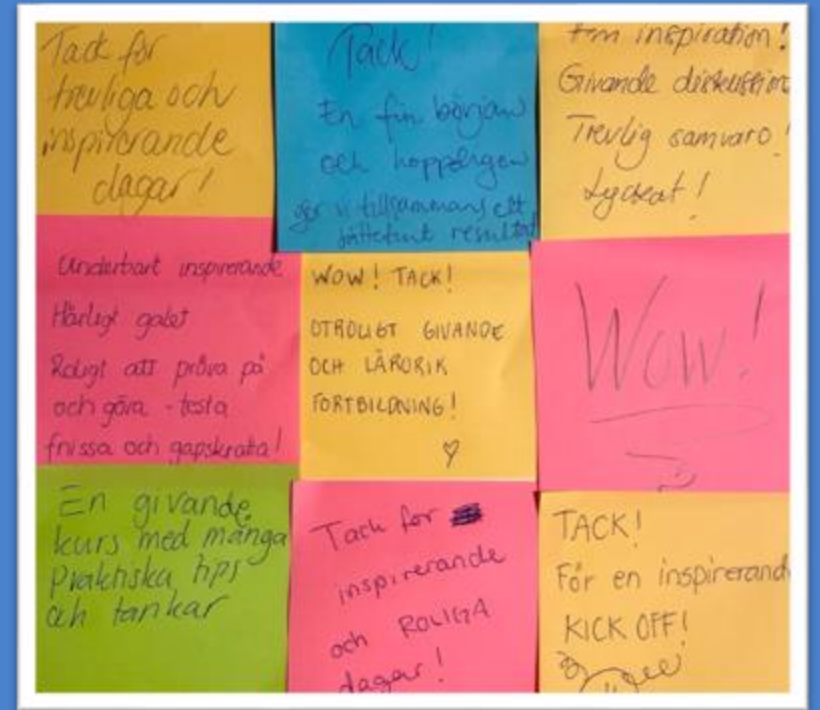 Tack för
trevliga och
inspirerande
dagar!
Tack!
En fin början
och hoppningen
ger vi tillsammans ett
jättefint resultat
inspiration!
Givande diskussion
Trevlig samvaro!
Lyckat!
Underbart inspirerande
Härligt galet
Roligt att pröva på
och göra - testa
fnissa och gapskratta!
WOW! TACK!
OTROLIGT GIVANDE
OCH LÄRORIK
FORTBILDNING!
Wow!
En givande
kurs med många
praktiska tips
och tankar
Tack för
inspirerande
och ROLIGA
dagar!
TACK!
För en inspirerand
KICK OFF!